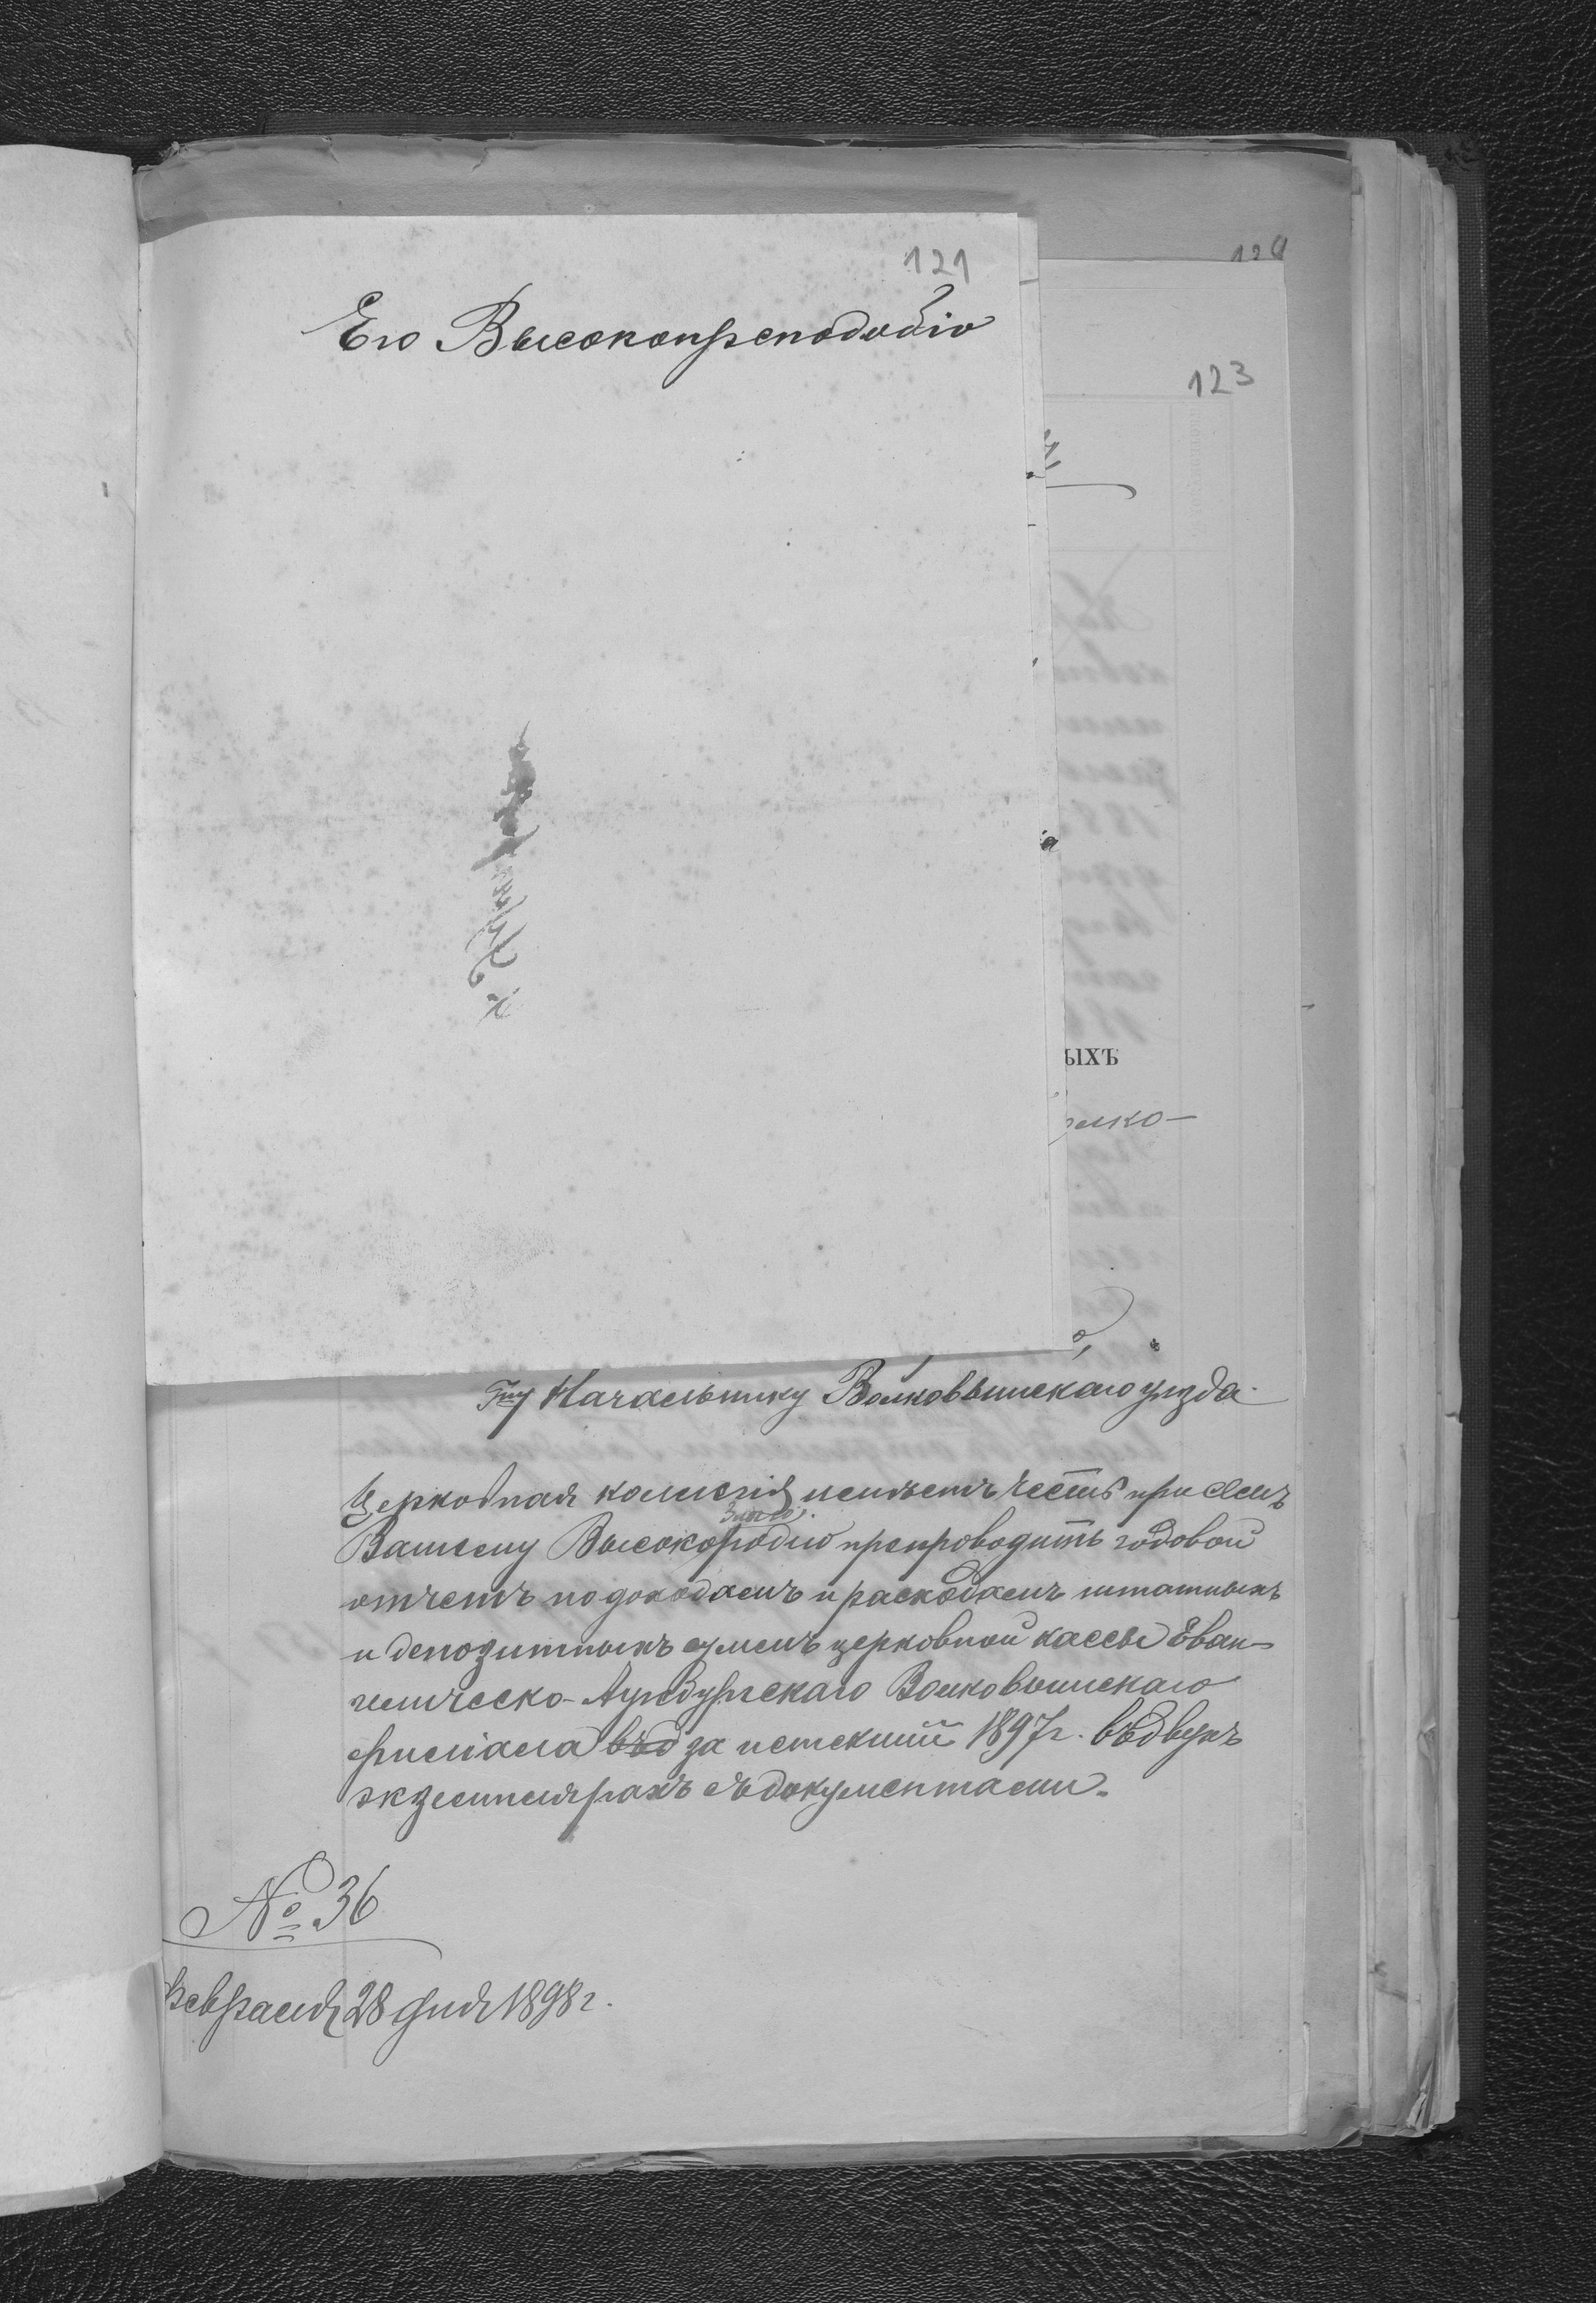 121
124
Его Высокопреподобію
123
ыхъ
Гну Начальнику Волковышскаго уѣзда.
Церковная коллегія имѣетъ честь при семъ
Вашему Высокородію препроводить годовой
отчетъ по доходамъ и расходамъ штатныхъ
и депозитныхъ суммъ церковной кассы Еван-
гелическо-Аугсбургскаго Волковышскаго
филіала въ д за истекшій 1897 г. въ двухъ
экземплярахъ съ документами.
№ 36
Февраля 28 дня 1898 г.